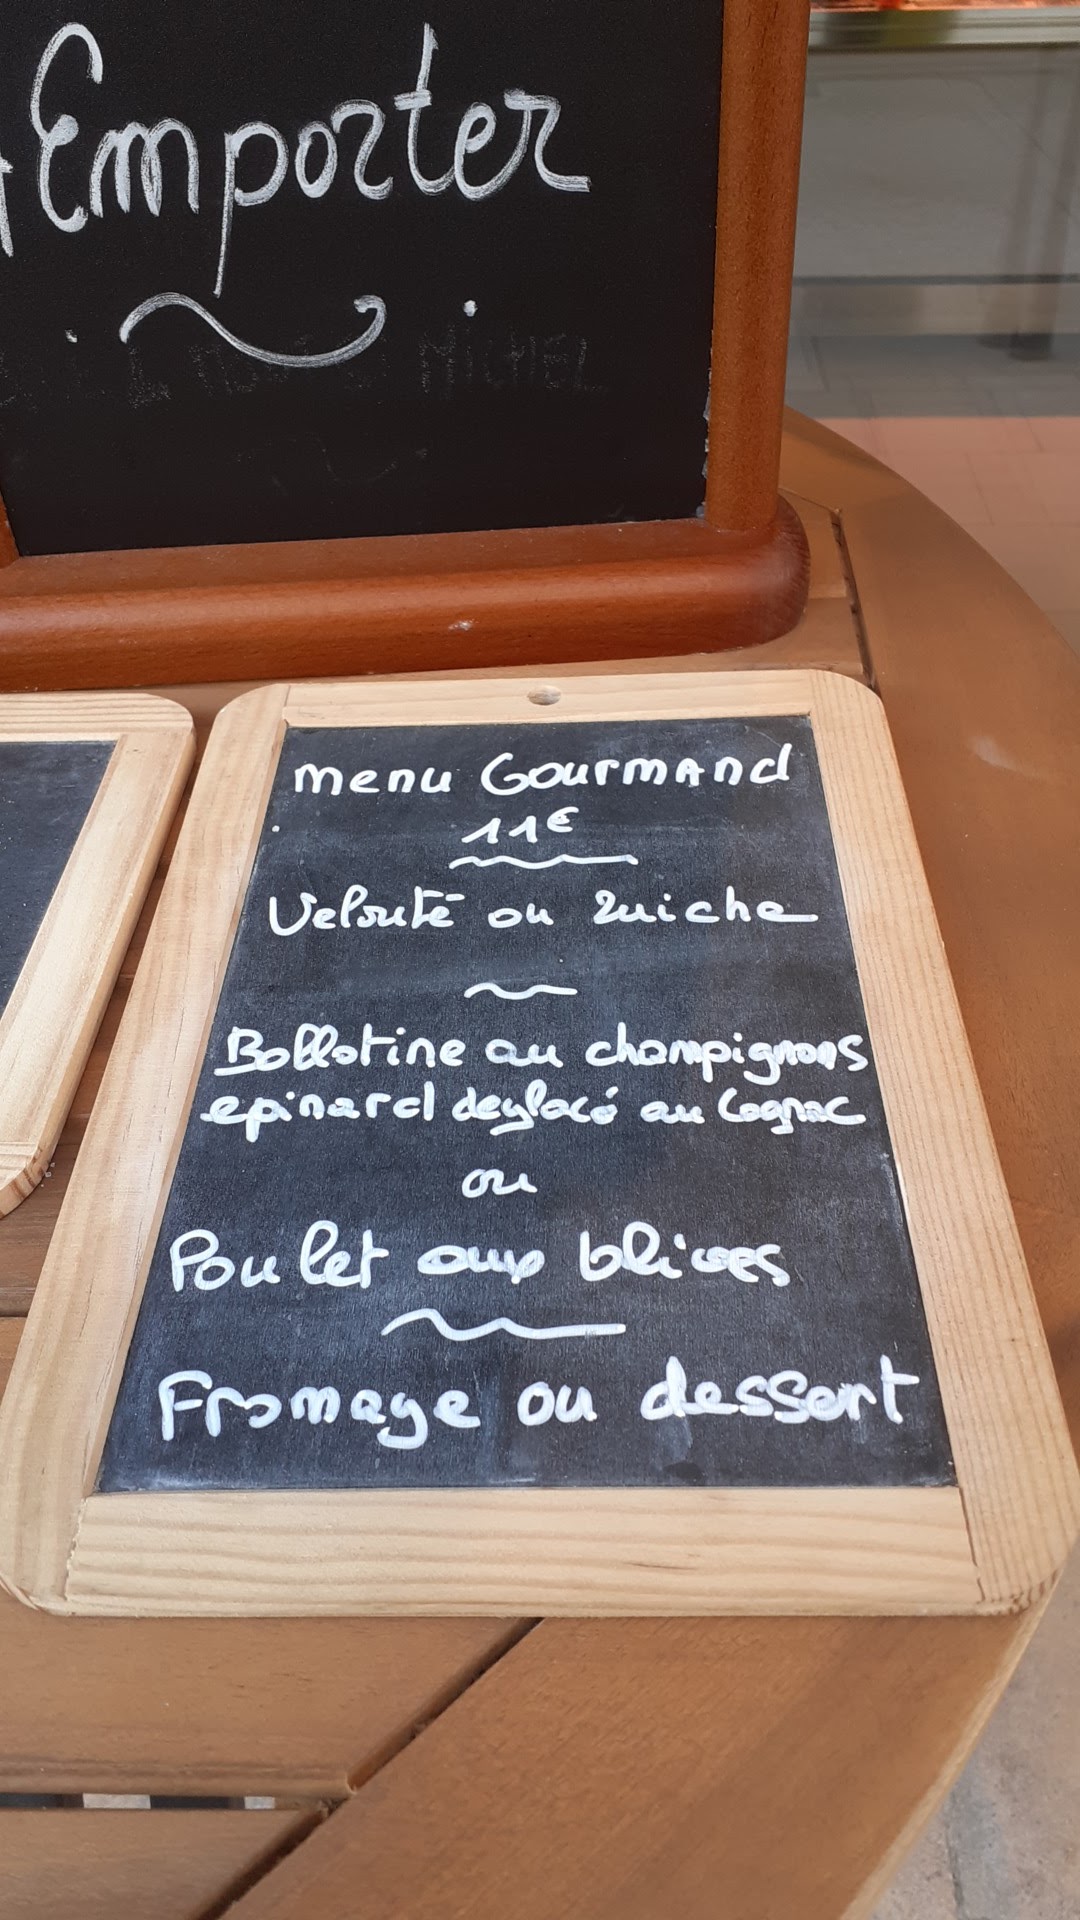 Emporter
MICHEL
menu Gourmand
11€
Velouté ou Quiche
Ballotine au champignons
epinard deglacé au Cognac
ou
Poulet aux olives
Fromage ou dessert